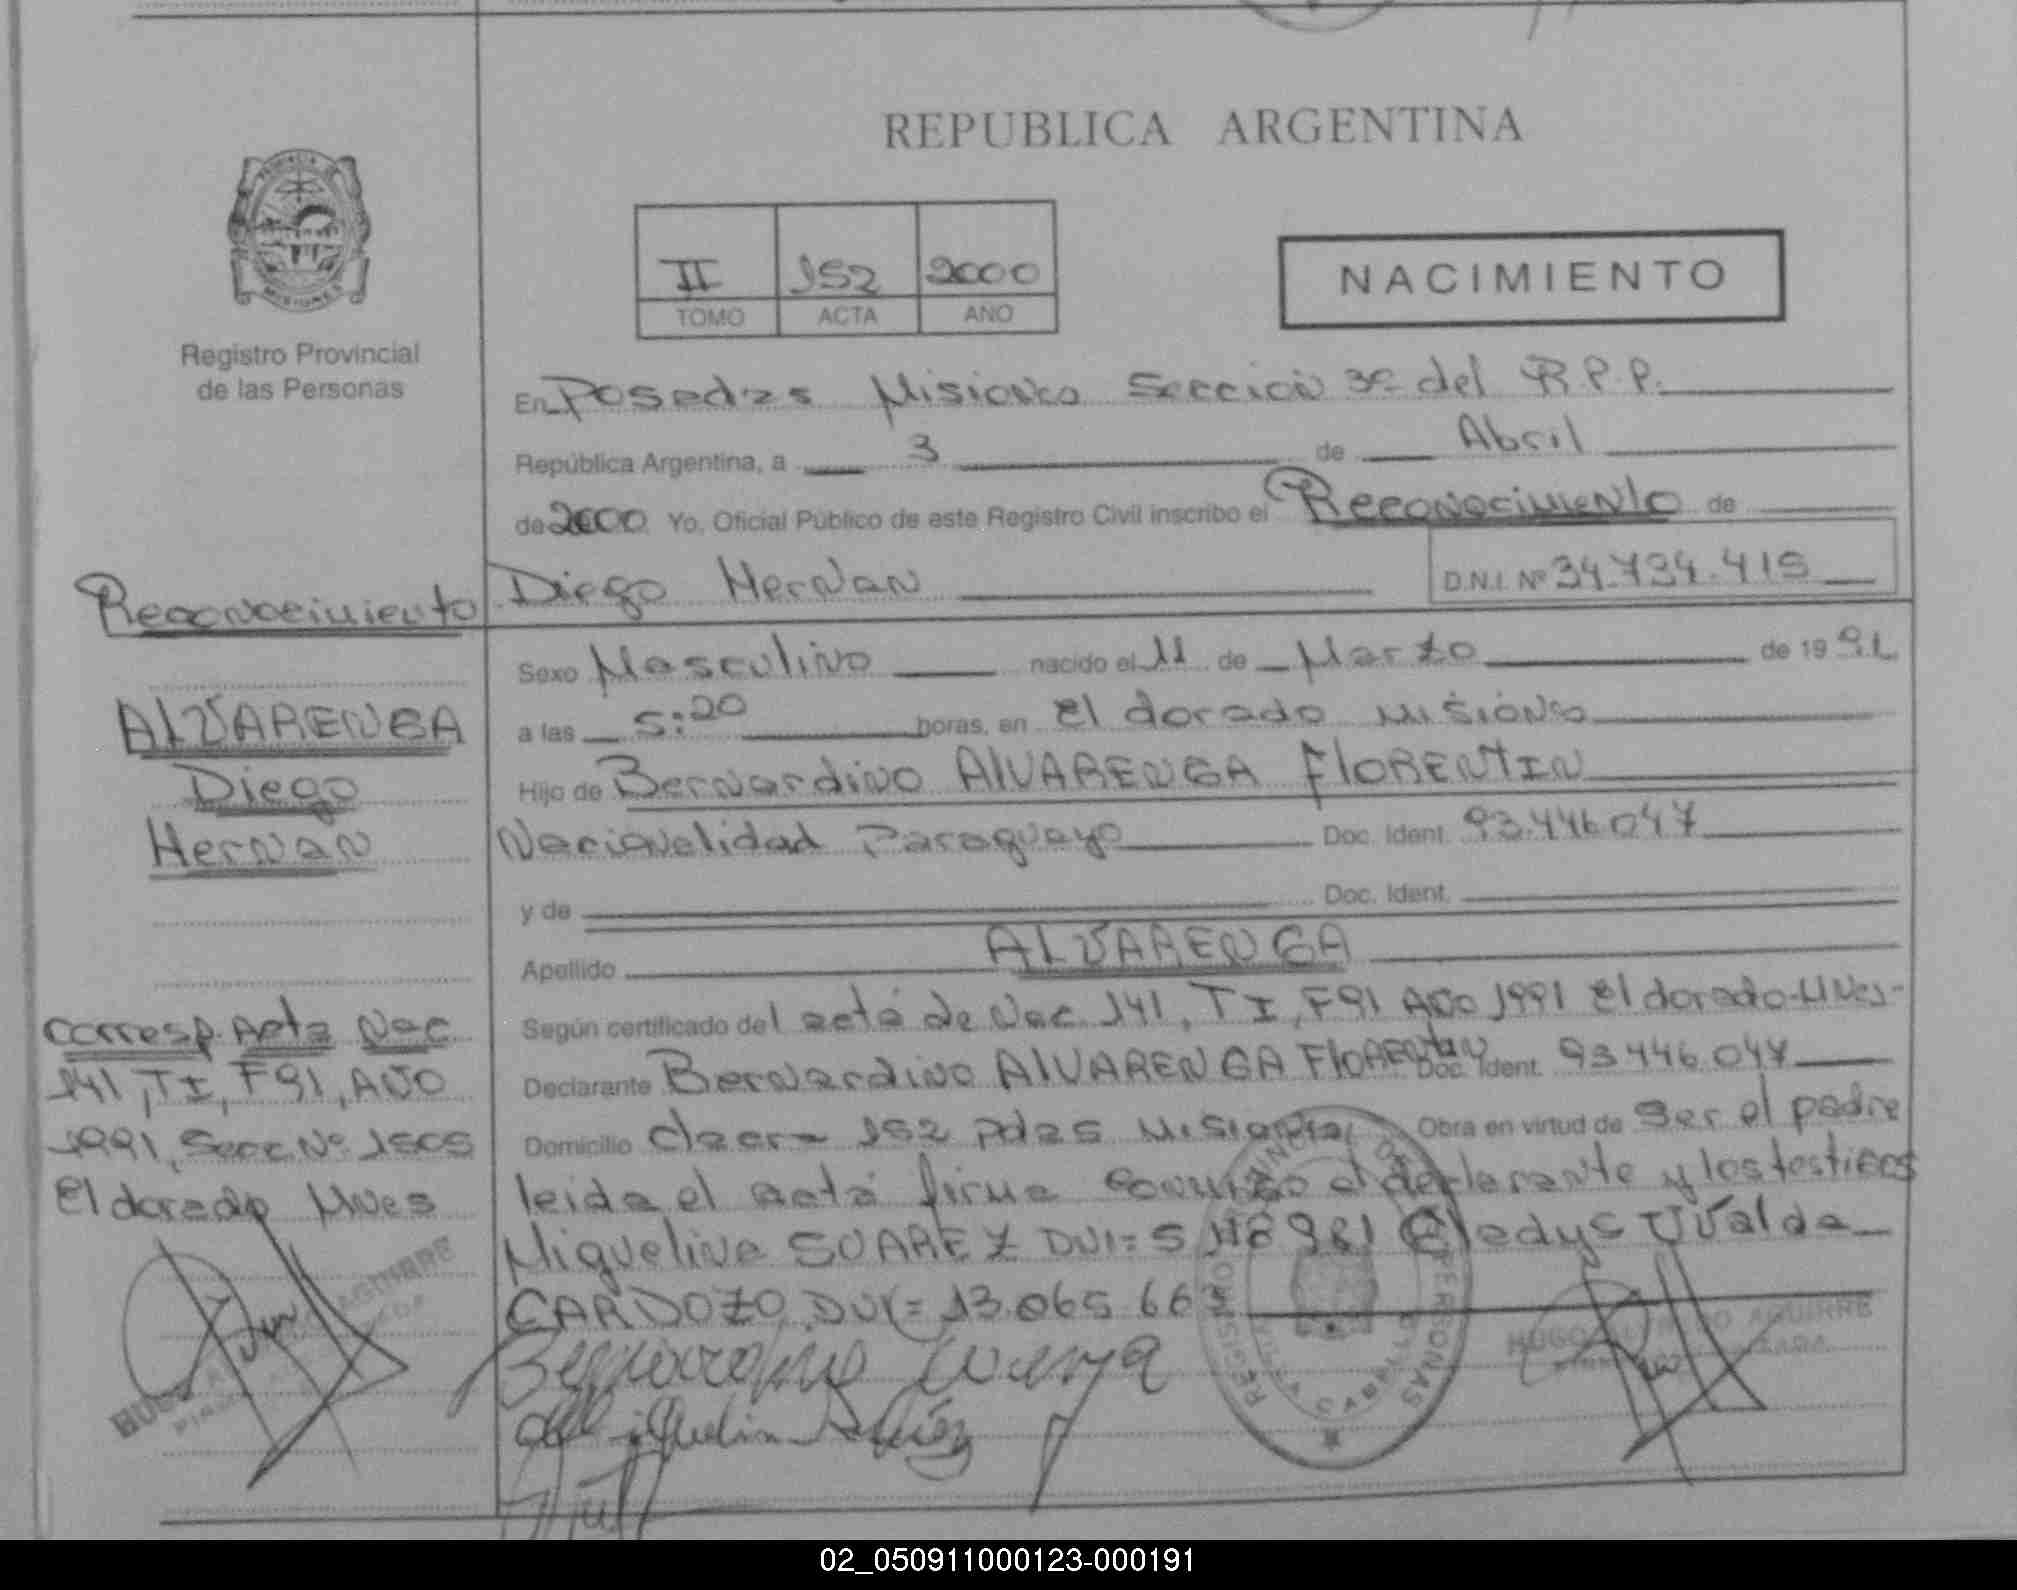 REPUBLICA ARGENTINA
II 152 2000
TOMO ACTA AÑO
NACIMIENTO
PROVINCIA
MISIONES
Registro Provincial
de las Personas
En Posadas Misiones Sección 3º del R.P.P.
República Argentina, a 3 de Abril
de 2000 Yo, Oficial Público de este Registro Civil inscribo el Reconocimiento de
Diego Hernan D.N.I. Nº 34.734.415
Sexo Masculino nacido el 11 de Marzo de 1991
a las 5:20 horas, en El dorado Misiones
Hijo de Bernardino ALVARENGA FLORENTIN
Nacionalidad Paraguayo Doc. Ident. 93.446.047
y de Doc. Ident.
Apellido ALVARENGA
Según certificado del acta de Nac. 141, TI, F91 Año 1991 El dorado-Mnes-
Declarante Bernardino ALVARENGA FLORENTIN Doc. Ident. 93.446.047
Domicilio 152 Pdas Misiones Obra en virtud de Ser el padre
leida el acta firma conmigo el declarante y los testigos
Miguelina SUAREZ DNI= 5 981 Gladys Uvalda
CARDOZO DNI= 13.065.66
Reconocimiento
ALVARENGA
Diego
Hernan
Corresp. Acta Nac
141, TI, F91, AÑO
1991, Secc. Nº 1505
El dorado Mnes
AGUIRRE
HUGO AGUIRRE
PERSONAS
02_050911000123-000191